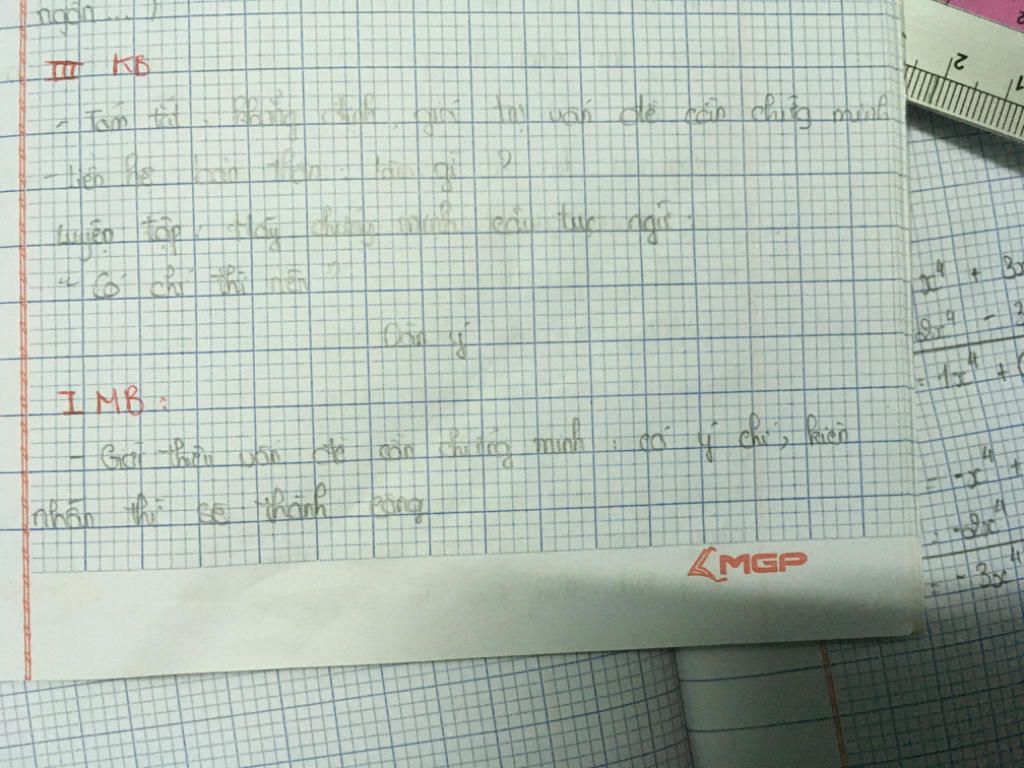 ngắn...)
III KB
- Tóm tắt, khẳng định, giá trị vấn đề cần chứng minh
- Liên hệ bản thân: làm gì?
Luyện tập: Hãy chứng minh câu tục ngữ:
" Có chí thì nên"
Dàn ý
I MB:
- Giới thiệu vấn đề cần chứng minh: có ý chí, kiên
nhẫn thì sẽ thành công
MGP
2
1
x⁴ + 3x
2x⁴ - 3
= 1x⁴ + (
= -x⁴ +
-2x⁴
= -3x⁴